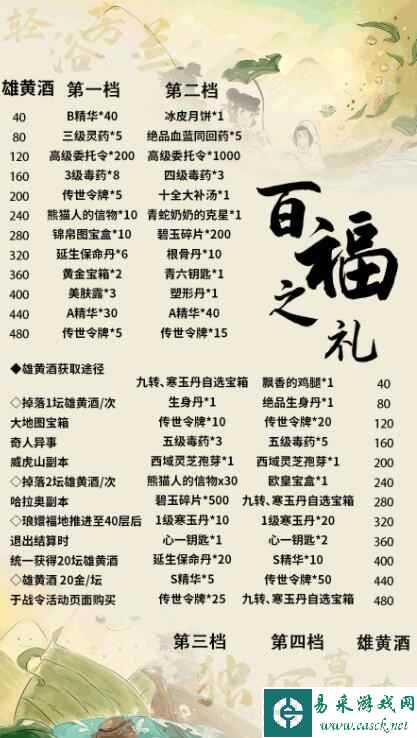 轻浴芳兰
雄黄酒 第一档 第二档
40 B精华*40 冰皮月饼*1
80 三级灵药*5 绝品血蓝同回药*5
120 高级委托令*200 高级委托令*1000
160 3级毒药*8 四级毒药*3
200 传世令牌*5 十全大补汤*1
240 熊猫人的信物*10 青蛇奶奶的克星*1
280 锦帛图宝盒*10 碧玉碎片*200
320 延生保命丹*6 根骨丹*10
360 黄金宝箱*2 青六钥匙*1
400 美肤露*3 塑形丹*1
440 A精华*30 A精华*40
480 传世令牌*5 传世令牌*15
百福之礼
◆雄黄酒获取途径
九转、寒玉丹自选宝箱 飘香的鸡腿*1 40
◇掉落1坛雄黄酒/次 生身丹*1 绝品生身丹*1 80
大地图宝箱 传世令牌*10 传世令牌*20 120
奇人异事 五级毒药*3 五级毒药*5 160
威虎山副本 西域灵芝孢芽*1 西域灵芝孢芽*1 200
◇掉落2坛雄黄酒/次 熊猫人的信物x30 欧皇宝盒*1 240
哈拉奥副本 碧玉碎片*500 九转、寒玉丹自选宝箱 280
◇琅嬛福地推进至40层后 1级寒玉丹*10 1级寒玉丹*20 320
退出结算时 心一钥匙*1 心一钥匙*2 360
统一获得20坛雄黄酒 延生保命丹*20 S精华*10 400
◇雄黄酒 20金/坛 S精华*5 传世令牌*50 440
于战令活动页面购买 传世令牌*25 九转、寒玉丹自选宝箱 480
第三档 第四档 雄黄酒
易采游戏网
www.easck.net